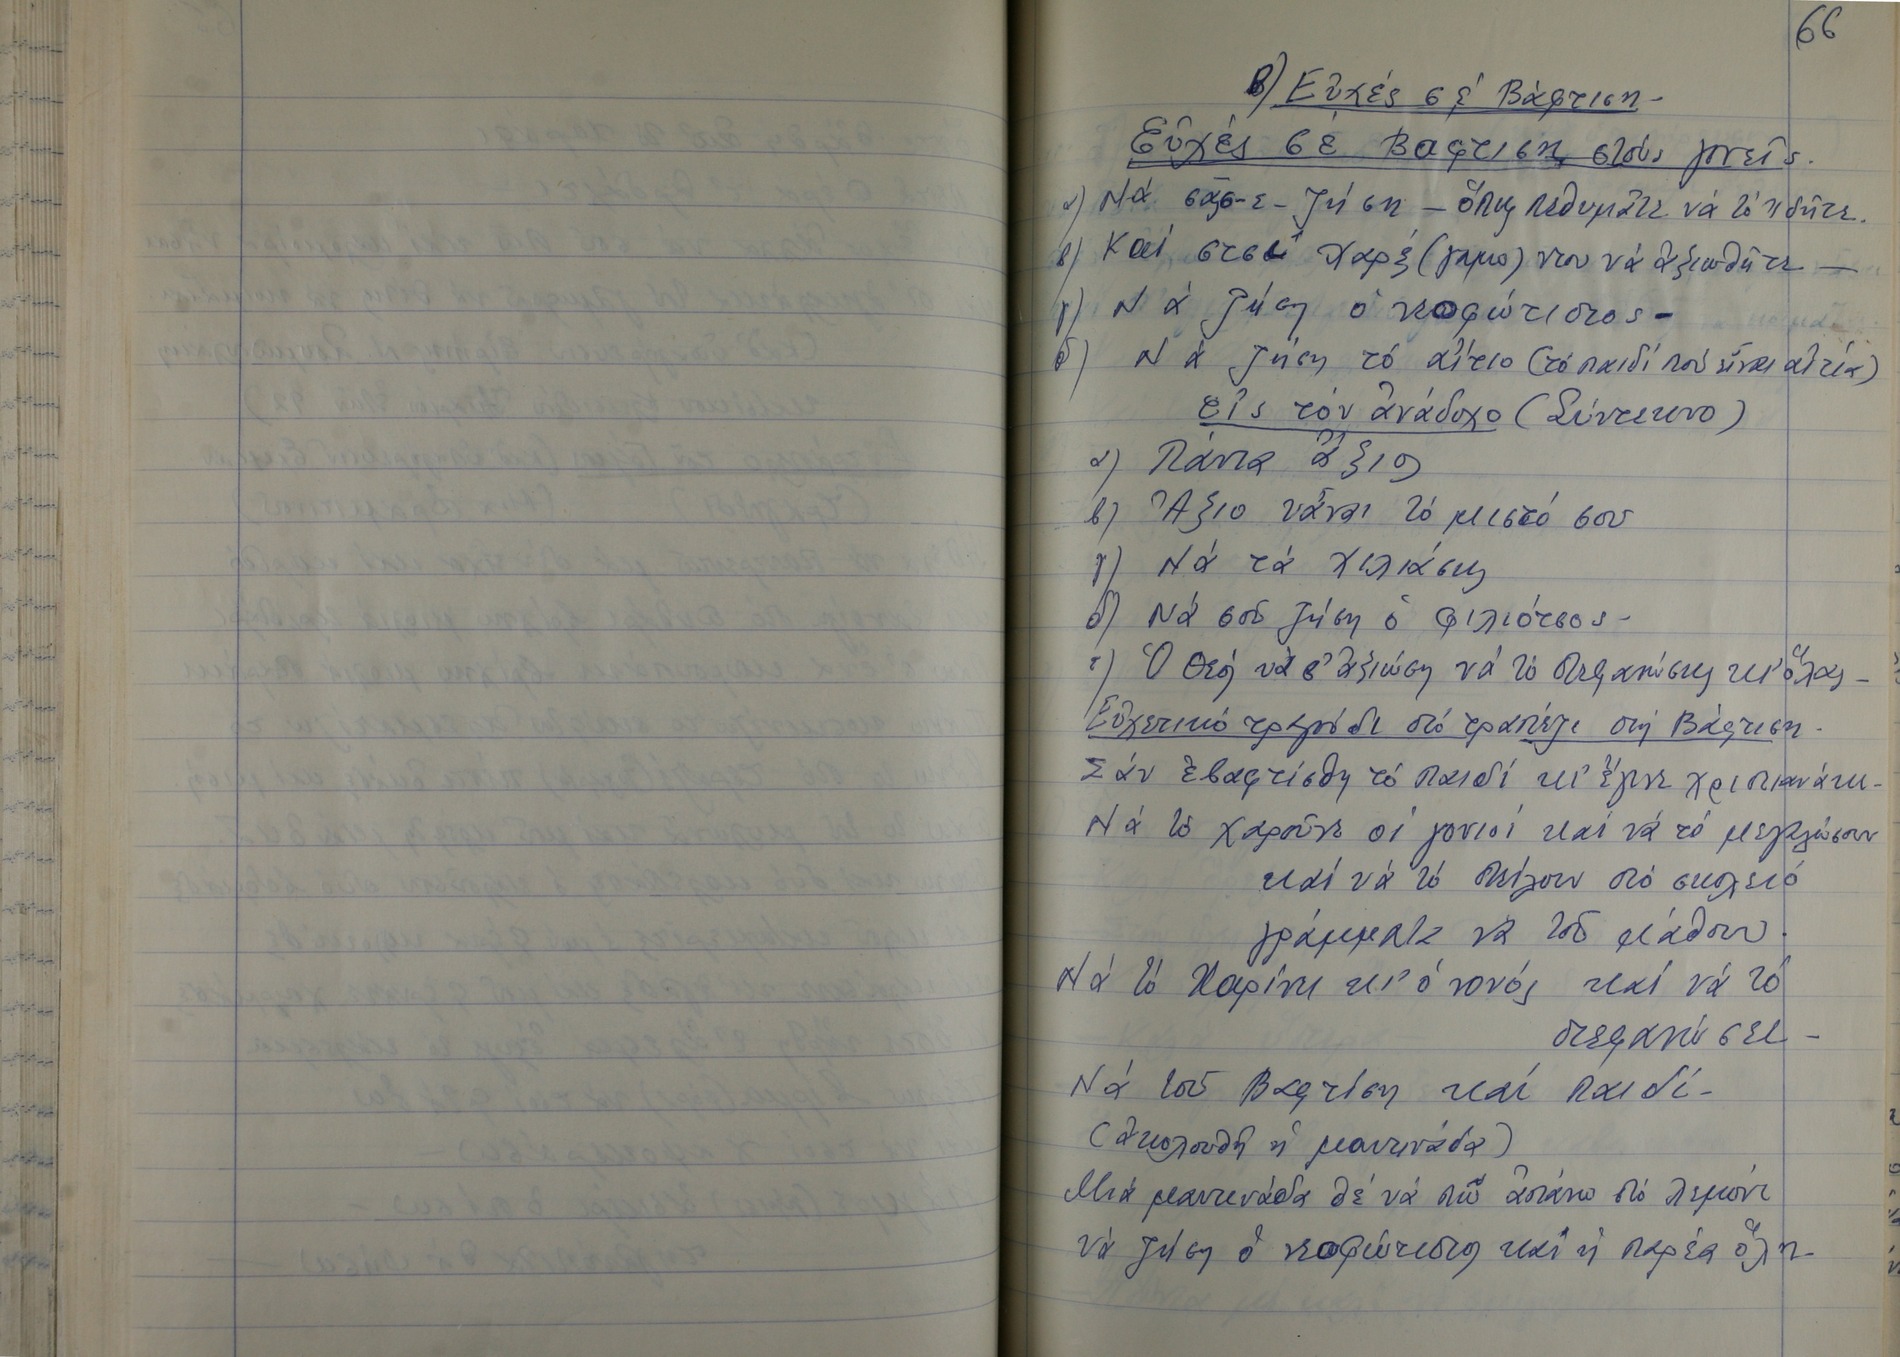 66
Β) Εὐχές σέ Βάφτιση -
Εὐχές σέ Βαφτιση στούς γονεῖς.
α) Νά σᾶς-ε-ζήση - ὅπως πεθυμᾶτε νά τό ἠδῆτε.
β) Καί στσί χαρές (γαμο) ντου νά ἀξιωθῆτε -
γ) Νά ζήση ὁ νεοφώτιστος -
δ) Νά ζήση τό αἴτιο (τό παιδί πού εἶναι αἰτία)
εἰς τόν ἀνάδοχο (Σύντεκνο)
α) Πάντα ἄξιος
β) Ἄξιο νἆναι τό μιστό σου
γ) Νά τά χιλιάσεις
δ) Νά σοῦ ζήση ὁ φιλιότσος -
ε) Ὁ Θεός νά σ' ἀξιώση νά τό στεφανώσεις κι' ὅλας -
Εὐχετικό τραγούδι στό τραπέζι στή Βάφτιση -
Σάν ἐβαφτίσθη τό παιδί κι' ἔγινε χριστιανάκι -
Νά τό χαροῦνε οἱ γονιοί καί νά τό μεγαλώσουν
καί νά τό στείλουν στό σκολειό
γράμματα νά τοῦ μάθουν.
Νά τό Χαρῆνε κι' ὁ νονός καί νά τό
στεφανώσει -
Νά τοῦ Βαφτίση καί παιδί -
(ἀκολουθῆ ἡ μαντινάδα)
Μιά μαντινάδα θέ νά πῶ ἀπάνω στό λεμόνι
νά ζήση ὁ νεοφώτιστος καί ἡ παρέα ὅλη -